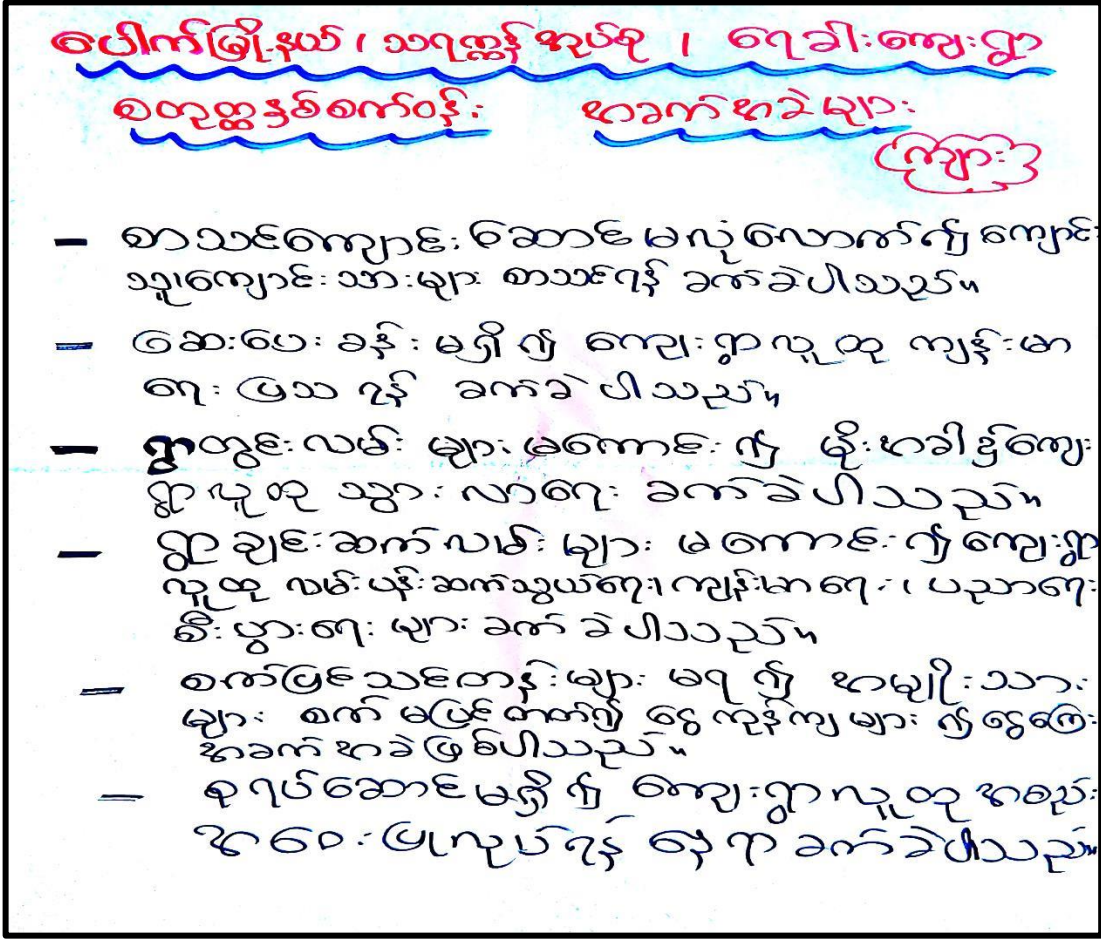 ပေါက်မြို့နယ်၊ သရက္ကန်အုပ်စု၊ ရေခါးကျေးရွာ
စတုတ္ထနှစ်စက်ဝန်း အခက်အခဲများ
ကျား
- စာသင်ကျောင်းဆောင်မလုံလောက်၍ ကျောင်း
သူ၊ကျောင်းသားများ စာသင်ရန် ခက်ခဲပါသည်။
- ဆေးပေးခန်းမရှိ၍ ကျေးရွာလူထု ကျန်းမာ
ရေးပြသရန် ခက်ခဲပါသည်။
- ရွာတွင်းလမ်းများ မကောင်း၍ မိုးအခါ၌ကျေး
ရွာလူထု သွားလာရေး ခက်ခဲပါသည်။
- ရွာချင်းဆက်လမ်းများ မကောင်း၍ကျေးရွာ
လူထု လမ်းပန်းဆက်သွယ်ရေး၊ ကျန်းမာရေး၊ ပညာရေး
စီးပွားရေးများ ခက်ခဲပါသည်။
- စက်ပြင်သင်တန်းများ မရ၍ အမျိုးသား
များ စက်မပြင်တတ်၍ ငွေကုန်ကျများ၍ ငွေကြေး
အခက်အခဲဖြစ်ပါသည်။
- စုရပ်ဆောင်မရှိ၍ ကျေးရွာလူထု အစည်း
အဝေးပြုလုပ်ရန် နေရာခက်ခဲပါသည်။